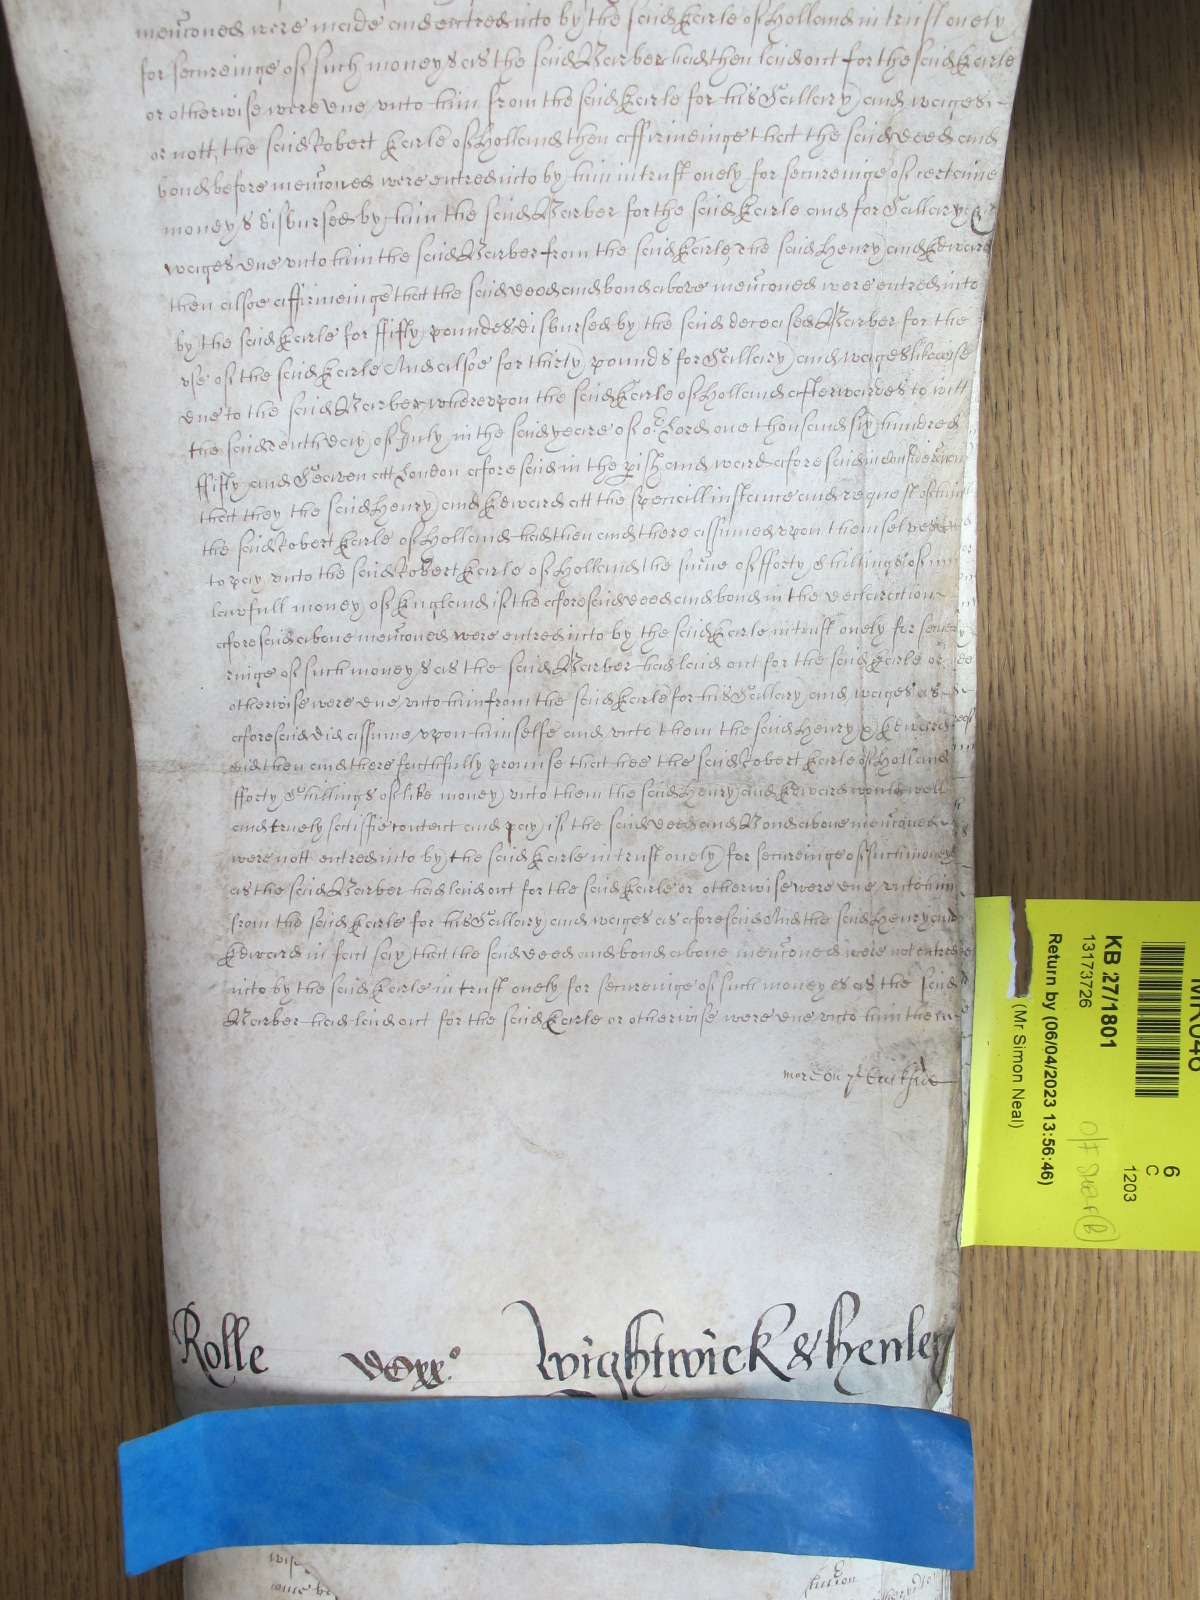 menc̃oned were made and entred into by the said Earle of Holland in trust onely
for secureinge of such moneys as the said Barber had then laid out for the said Earle
or otherwise were due unto him from the said Earle for his Sallary and wages
or nott, the said Robert Earle of Holland then affirmeinge that the said deed and
bond before menc̃oned were entred into by him in trust onely for secureinge of certaine
moneys disbursed by him the said Barber for the said Earle and for Sallary &
wages due unto him the said Barber from the said Earle, The said Henry and Edward
then alsoe affirmeinge that the said deed and bond above menc̃oned were entred into
by the said Earle for fifty poundes disbursed by the said deceased Barber for the
use of the said Earle And alsoe for thirty pounds for Sallary and wages likewise
due to the said Barber whereupon the said Earle of Holland afterwardes to witt
the said tenth day of July in the said yeare of or Lord one thousand six hundred
fifty and Seaven att London aforesaid in the pish and ward aforesaid in considerac̃on
that they the said Henry and Edward att the speciall instance and request of him
the said Robert Earle of Holland had then and there assumed upon themselves
to pay unto the said Robert Earle of Holland the sum̃e of forty shillings of
lawfull money of England if the aforesaid deed and bond in the declarac̃tion
aforesaid above menc̃oned were entred into by the said Earle in trust onely for secu
ringe of such moneys as the said Barber had laid out for the said Earle or
otherwise were due unto him from the said Earle for his Sallary and wages as
aforesaid did assume upon himselfe and unto them the said Henry & Edward
did then and there faithfully promise that hee the said Robert Earle of Holland
forty shillings of like money unto them the said Henry and Edward would well
and truely satisfie content and pay if the said deed and Bond above menc̃oned
were nott entred into by the said Earle in trust onely for secureinge of such moneys
as the said Barber had laid out for the said Earle or otherwise were due unto him
from the said Earle for his Sallary and wages as aforesaid And the said Henry and
Edward in fact say that the said deed and bond above menc̃oned were not entred
into by the said Earle in trust onely for secureinge of such moneyes as the said
Barber had laid out for the said Earle or otherwise were due unto him the
more on ye backside
Rolle Wightwick & Henley
KB 27/1801
13173726
Return by (06/04/2023 13:56:46)
(Mr Simon Neal)
6
C
1203